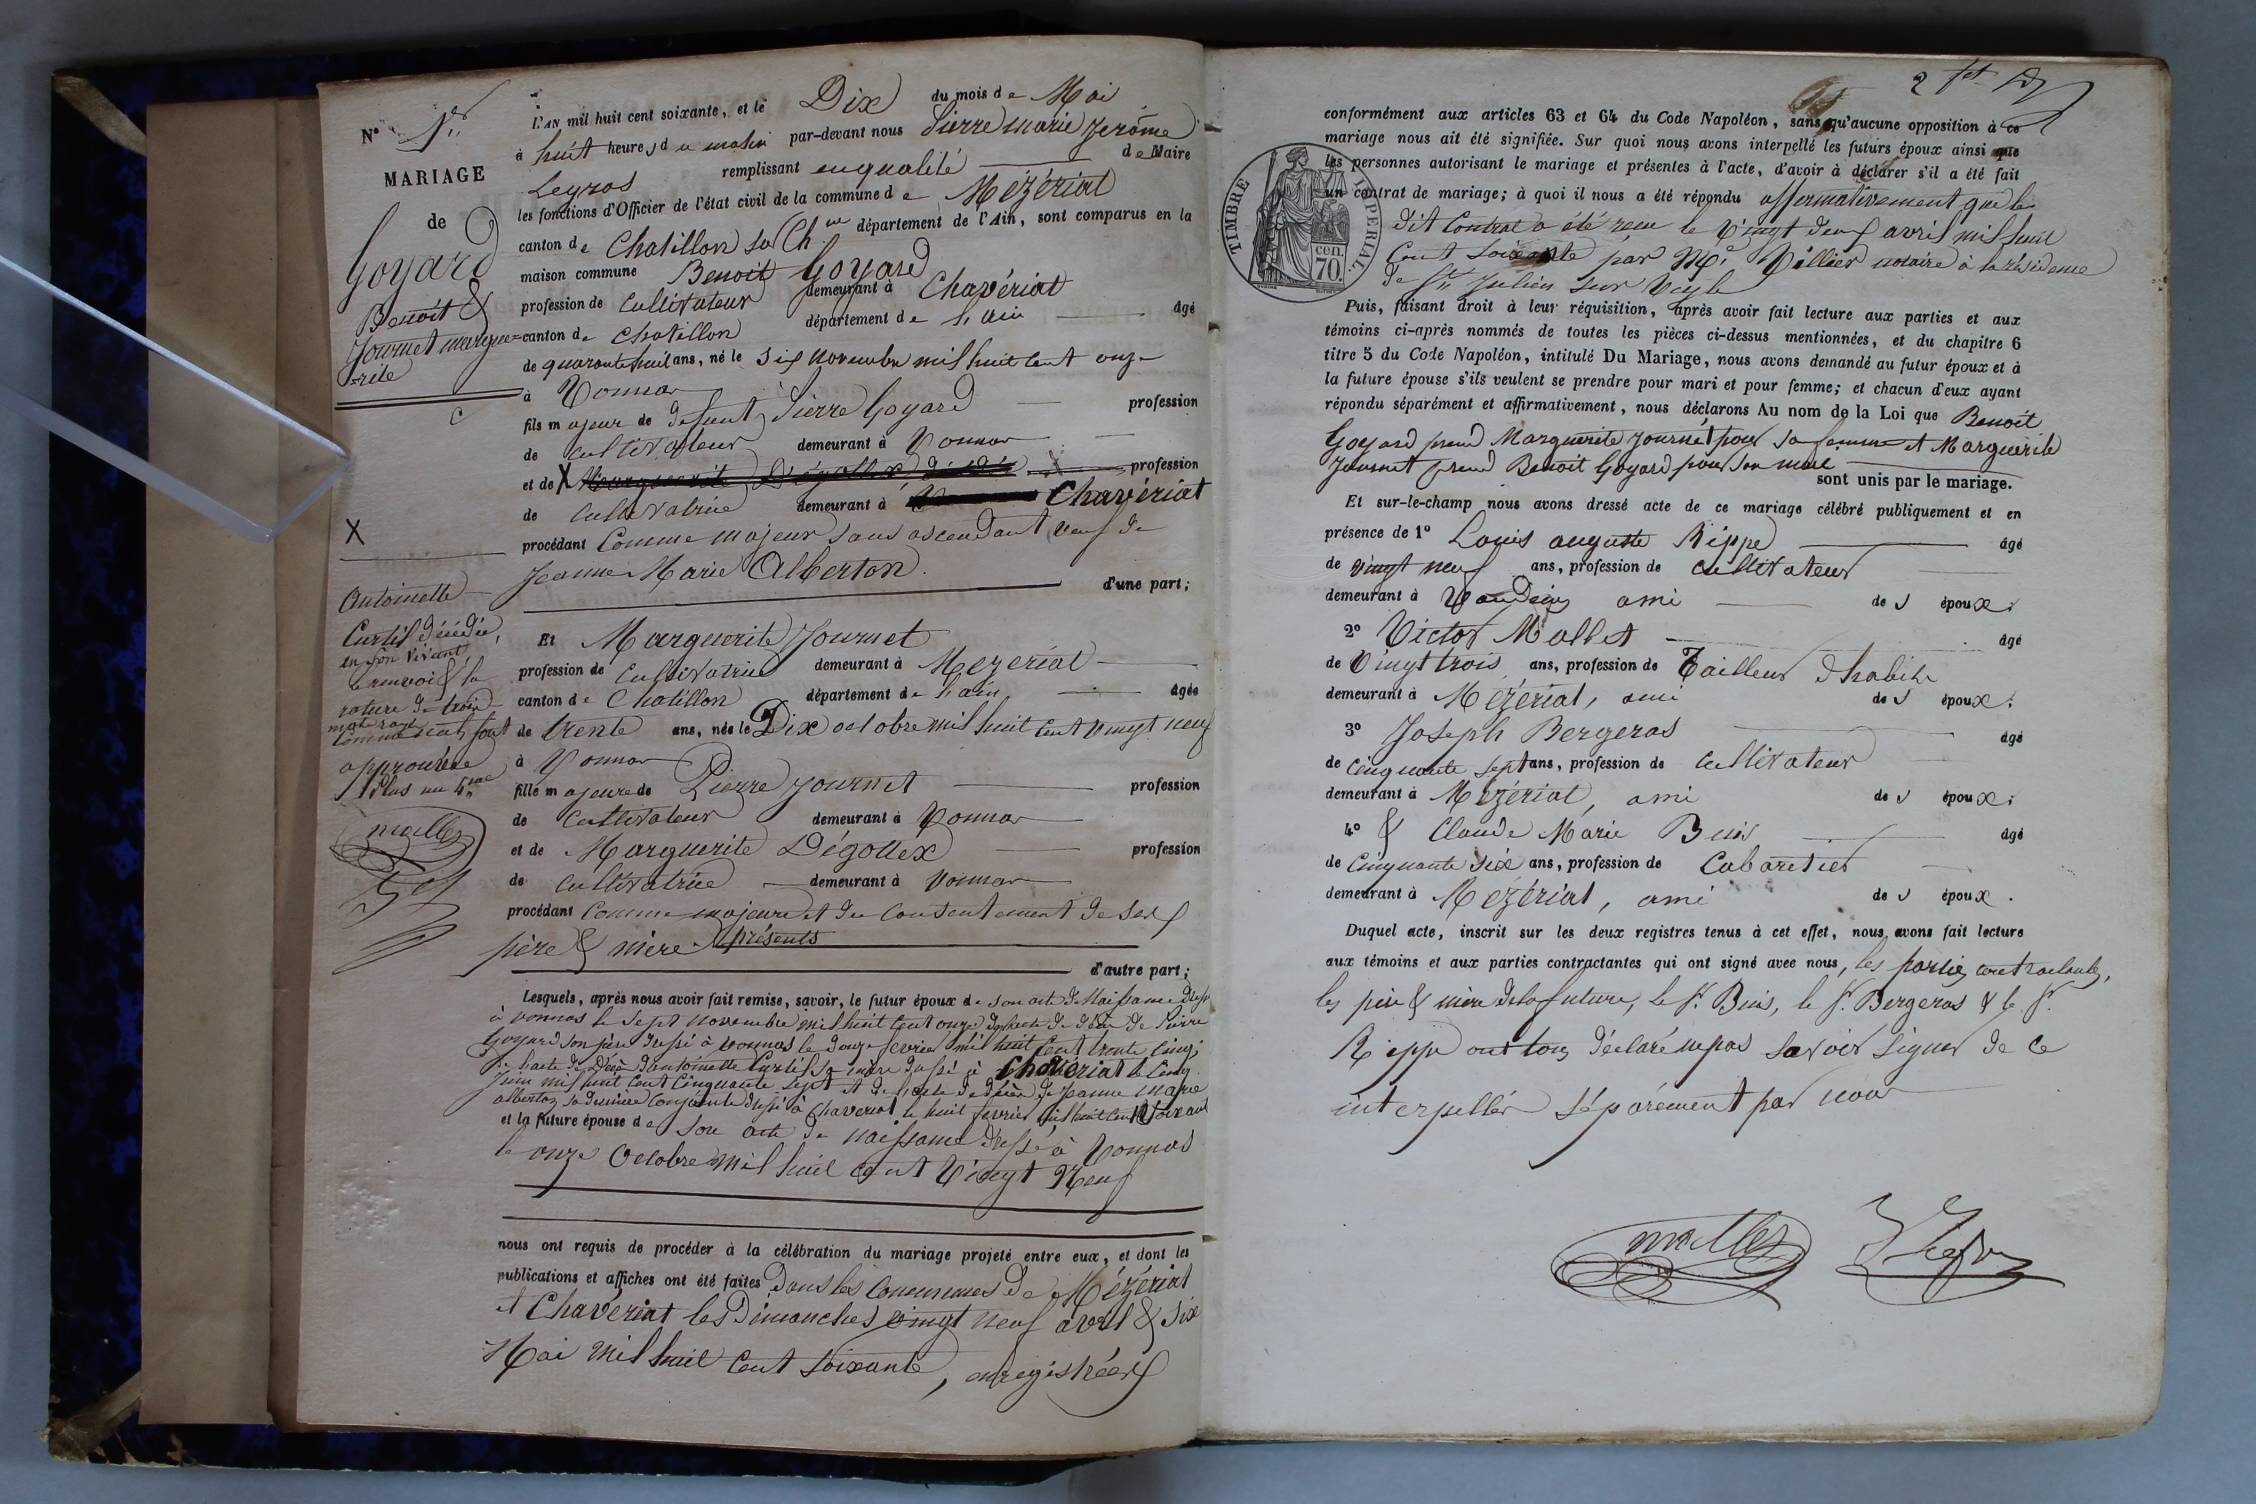 N° 1er
MARIAGE
de
Goyard
Benoit &
Journet margue=
=rite
X
Antoinette
Curtil décédée,
en son vivant,
le renvoi & la
rature de trois
mots rayés nuls sont
approuvée
Plus un
mallet
L'AN mil huit cent soixante, et le Dix du mois de Mai
à huit heures du matin par-devant nous Pierre marie Jerôme
Leyras remplissant en qualité de Maire
les fonctions d'Officier de l'état civil de la commune de Mézériat
canton de Chatillon sur Ch.ne département de l'Ain, sont comparus en la
maison commune Benoit Goyard
profession de Cultivateur demeurant à Chavériat
canton de Chatillon département de l'ain âgé
de quarante huit ans, né le six Novembre mil huit cent onze
à Vonnas
fils majeur de défunt Pierre Goyard profession
de Cultivateur demeurant à Vonnas
et de X Marguerite Dégollex, décédée profession
de Cultivatrice demeurant à Chavériat
procédant Comme majeur sans ascendant veuf de
Jeanne Marie Alberton.
d'une part;
Et Marguerite Journet
profession de Cultivatrice demeurant à Mézériat
canton de Chatillon département de l'ain, âgée
de trente ans, née le Dix octobre mil huit cent vingt neuf
à Vonnas
fille majeure de Pierre Journet profession
de Cultivateur demeurant à Vonnas
et de Marguerite Dégollex profession
de Cultivatrice demeurant à Vonnas
procédant Comme majeure et du consentement de ses
père & mère présents
d'autre part;
Lesquels, après nous avoir fait remise, savoir, le futur époux de son acte de Naissance dressé
à vonnas le sept novembre mil huit cent onze de l'acte de décès de Pierre
Goyard son père dressé à vonnas le douze fevrier mil huit cent trente cinq,
de l'acte de Décès d'Antoinette Curtil sa mère dressé à Chavériat le cinq
Juin mil huit cent cinquante sept et de l'acte de décès de Jeanne Marie
alberton sa dernière conjointe dressé à Chavériat le huit fevrier mil huit cent soixante
et la future épouse de son acte de naissance dressé à Vonnas
le onze Octobre mil huit cent Vingt Neuf
nous ont requis de procéder à la célébration du mariage projeté entre eux, et dont les
publications et affiches ont été faites dans les Communes de Mézériat
et Chavériat les Dimanches vingt neuf avril & six
Mai mil huit cent soixante, enregistrées
2
TIMBRE IMPERIAL.
cen.
70.
conformément aux articles 63 et 64 du Code Napoléon, sans qu'aucune opposition à ce
mariage nous ait été signifiée. Sur quoi nous avons interpellé les futurs époux ainsi que
les personnes autorisant le mariage et présentes à l'acte, d'avoir à déclarer s'il a été fait
un contrat de mariage; à quoi il nous a été répondu affirmativement que le
dit Contrat a été reçu le Vingt deux avril mil huit
Cent soixante par Me. Villier notaire à la résidence
de St Julien sur Veyle
Puis, faisant droit à leur réquisition, après avoir fait lecture aux parties et aux
témoins ci-après nommés de toutes les pièces ci-dessus mentionnées, et du chapitre 6
titre 5 du Code Napoléon, intitulé Du Mariage, nous avons demandé au futur époux et à
la future épouse s'ils veulent se prendre pour mari et pour femme; et chacun d'eux ayant
répondu séparément et affirmativement, nous déclarons Au nom de la Loi que Benoit
Goyard prend Marguerite Journet pour sa femme et Marguerite
Journet prend Benoit Goyard pour son mari
sont unis par le mariage.
Et sur-le-champ nous avons dressé acte de ce mariage célébré publiquement et en
présence de 1° Louis auguste Rippe âgé
de vingt neuf ans, profession de cultivateur
demeurant à Vandeins ami des époux.
2° Victor Mallet âgé
de Vingt trois ans, profession de Tailleur d'habits
demeurant à Mézériat, ami des époux.
3° Joseph Bergeras âgé
de cinquante sept ans, profession de cultivateur
demeurant à Mézériat, ami des époux.
4° & Claude Marie Buis âgé
de Cinquante six ans, profession de Cabaretier
demeurant à Mézériat, ami des époux.
Duquel acte, inscrit sur les deux registres tenus à cet effet, nous avons fait lecture
aux témoins et aux parties contractantes qui ont signé avec nous, les parties contractantes,
les père & mère de la future, le Sr. Buis, le Sr. Bergeras & le Sr.
Rippe ont tous déclaré ne pas savoir signer de ce
interpellés séparément par nous
mallet
Leyras